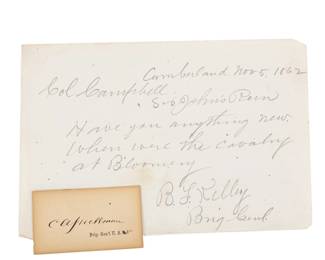 Cumberland Nov 5. 1862
Col Campbell
Sir Johns Run
Have you anything new.
When were the cavalry
at Bloomery
B. F. Kelley
Brig Genl
Brig. Gen'l U.S.